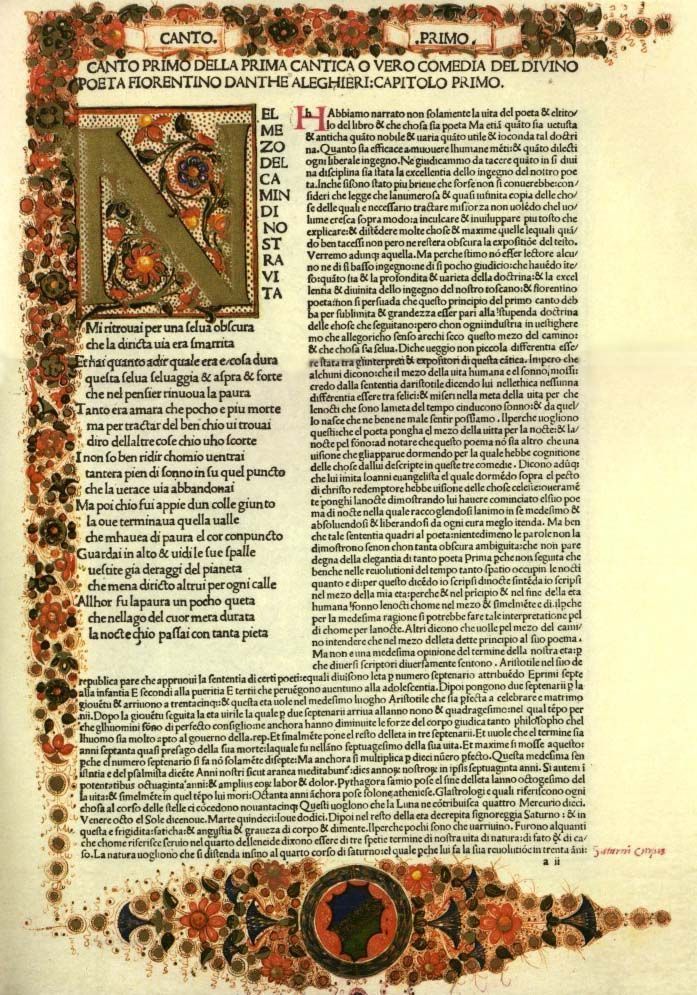 CANTO. PRIMO.
CANTO PRIMO DELLA PRIMA CANTICA O VERO COMEDIA DEL DIVINO
POETA FIORENTINO DANTHE ALEGHIERI: CAPITOLO PRIMO.
N
EL
MEZO
DEL
CA
MIN
DI
NO
ST
RA
VI
TA
Mi ritrouai per una selua obscura
che la diricta uia era smarrita
Et hai quanto adir quale era e cosa dura
questa selua seluaggia & aspra & forte
che nel pensier rinuoua la paura
Tanto era amara che pocho e piu morte
ma per tractar del ben chio ui trouai
diro dellaltre cose chio uho scorte
I non so ben ridir chomio uentrai
tantera pien di sonno in su quel puncto
che la uerace uia abbandonai
Ma poi chio fui appie dun colle giunto
la oue terminaua quella ualle
che mhauea di paura el cor conpuncto
Guardai in alto & uidi le sue spalle
uestite gia deraggi del pianeta
che mena diricto altrui per ogni calle
Allhor fu lapaura un pocho queta
che nellago del cuor mera durata
la nocte chio passai con tanta pieta
HAbbiamo narrato non solamente la uita del poeta & eltito/
lo del libro & che chosa sia poeta Ma etiã quãto sia uetusta
& anticha quãto nobile & uaria quãto utile & ioconda tal doctri
na. Quanto sia efficace a muouere lhumane mẽti: & quãto dilecti
ogni liberale ingegno. Ne giudicammo da tacere quãto in si diui
na disciplina sia stata la excellentia dello ingegno del nostro poe
ta. Inche sisono stato piu brieue che forse non si conuerebbe: con/
sideri che legge che lanumerosa & quasi infinita copia delle cho/
se delle quali e necessario tractare misforza non uolẽdo chel uo/
lume cresca sopra modo: a inculcare & inuiluppare piu tosto che
explicare: & distẽdere molte chose & maxime quelle lequali quã/
do ben tacessi non pero ne restera obscura la expositiõe del testo.
Verremo adunq; aquella. Ma perche stimo nõ esser lectore alcu/
no ne di si basso ingegno: ne di si pocho giudicio: che hauẽdo ite/
so: quãto sia & la profondita & uarieta della doctrina: & la excel
lentia & diuinita dello ingegno del nostro toscano: & fiorentino
poeta: non si persuada che questo principio del primo canto deb
ba per sublimita & grandezza esser pari alla stupenda doctrina
delle chose che seguitano: pero chon ogni industria in uestighere
mo che allegoricho senso arechi seco questo mezo del camino:
& che chosa sia selua. Diche ueggio non piccola differentia esse/
re stata tra glinterpreti & expositori di questa cãtica. Impero che
alchuni dicono: che il mezo della uita humana e el sonno, mossi:
credo dalla sententia daristotile dicendo lui nellethica nessunna
differentia essere tra felici: & miseri nella meta della uita per che
lenocti che sono lameta del tempo cinducono sonno: & da quel/
lo nasce che ne bene ne male sentir possamo. Ilperche uogliono
questi: che el poeta pongha el mezo della uitta per la nocte: & la/
nocte pel sõno: ad notare che questo poema nõ sia altro che una
uisione che gliapparue dormendo per la quale hebbe cognitione
delle chose dallui descripte in queste tre comedie. Dicono adũq;
che lui imita Ioanni euangelista el quale dormẽdo sopra el pecto
di christo redemptore hebbe uisione delle chose celeste: oueramẽ
te ponghi lanocte dimostrando lui hauere cominciato elsuo poe
ma di nocte nella quale raccoglendosi lanimo in se medesimo &
absoluendosi & liberandosi da ogni cura meglo itenda. Ma ben
che tale sentẽtia quadri al poeta: nientedimeno le parole non la
dimostrono senon chon tanta obscura ambiguita: che non pare
degna della elegantia di tanto poeta Prima pche non seguita che
benche nelle reuolutioni del tempo tanto spatio occupin le nocti
quanto e di: per questo dicẽdo io scripsi dinocte sintẽda io scripsi
nel mezo della mia eta: perche & nel pricipio & nel fine della eta
humana sonno lenocti chome nel mezo & similmẽte e di. ilpche
per la medesima ragione si potrebbe fare tale interpretatione pel
di chome per lanocte. Altri dicono che uolle pel mezo del cami/
no intendere che nel mezo delleta dette principio al suo poema.
Ma non e una medesima opinione del termine della nostra eta: p
che diuersi scriptori diuersamente sentono. Aristotile nel suo de
republica pare che appruoui la sententia di certi poeti: equali diuisono leta p numero septenario attribuẽdo E primi septe
alla infantia E secondi alla pueritia E tertii che peruẽgono auentuno alla adolescentia. Dipoi pongono due septenarii p la
giouẽtu & arriuono a trentacinq: & questa eta uole nel medesimo luogho Aristotile che sia pfecta a celebrare e matrimo
nii. Dopo la giouẽtu seguita la eta uirile la quale p due septenarii arriua allanno nono & quadragesimo: nel qual tẽpo per
che glhuomini sono di perfecto consiglio: ne anchora hanno diminuite le forze del corpo giudica tanto philosopho chel
lhuomo sia molto apto al gouerno della.rep. Et finalmẽte pone el resto delleta in tre septenarii. Et uuole che el termine sia
anni septanta quasi presago della sua morte: laquale fu nellãno septuagesimo della sua uita. Et maxime si mosse aquesto:
pche el numero septenario si fa nõ solamẽte disepte: Ma anchora si multiplica p dieci nũero pfecto. Questa medesima sen
tentia e del psalmista dicẽte Anni nostri sicut aranea meditabunt: dies annoɽ nostroɽ in ipsis septuaginta anni. Si autem i
potentatibus octuaginta anni: & amplius eoɽ labor & dolor. Pythagora samio pose el fine delleta lanno octogesimo del
la uita: & similmẽte in quel tẽpo lui mori: Octanta ãni ãchora pose solone atheniese. Glastrologi e quali riferiscono ogni
chosa al corso delle stelle ci cõcedono nouantacinq; Questi uogliono che la Luna ne cõtribuisca quattro Mercurio dieci.
Venere octo el Sole dicenoue. Marte quindeci: Ioue dodici. Dipoi nel resto della eta decrepita signoreggia Saturno: & in
questa e frigidita: saticha: & angustia & graueza di corpo & dimente. Ilperche pochi sono che uarruino. Furono alquanti
che chome riferisce seruio nel quarto delleneide dixono essere di tre spetie termine di nostra uita di natura: di fato & di ca/
so. La natura uogliono che si distenda insino al quarto corso di saturno: el quale pche lui fa la sua reuolutiõe in trenta ãni:
a ii